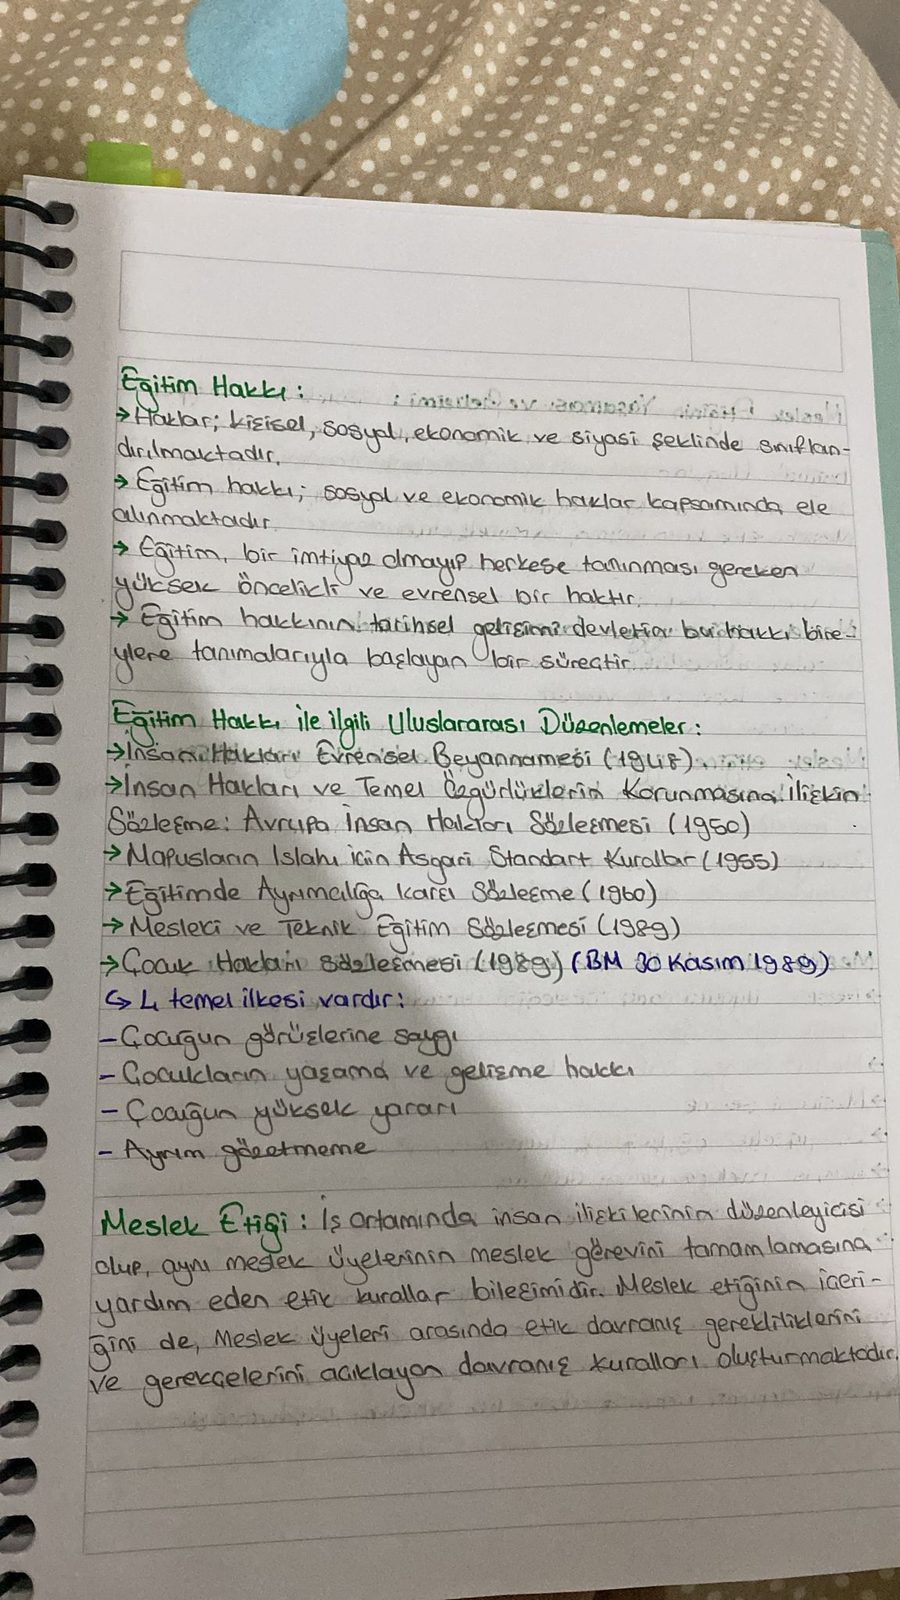 Eğitim Hakkı:
→Haklar; kişisel, sosyal, ekonomik ve siyasi şeklinde sınıflan-
dırılmaktadır.
→ Eğitim hakkı; sosyal ve ekonomik haklar kapsamında ele
alınmaktadır.
→ Eğitim, bir imtiyaz olmayıp herkese tanınması gereken
yüksek öncelikli ve evrensel bir haktır.
→ Eğitim hakkının tarihsel gelişimi devletin bu hakkı bire-
ylere tanımalarıyla başlayan bir süreçtir.
Eğitim Hakkı ile ilgili Uluslararası Düzenlemeler:
→İnsan Hakları Evrensel Beyannamesi (1948)
→İnsan Hakları ve Temel Özgürlüklerin Korunmasına İlişkin
Sözleşme: Avrupa İnsan Hakları Sözleşmesi (1950)
→Mapusların Islahı için Asgari Standart Kurallar (1955)
→Eğitimde Ayrımcılığa Karşı Sözleşme (1960)
→Mesleki ve Teknik Eğitim Sözleşmesi (1989)
→Çocuk Hakları Sözleşmesi (1989) (BM 30 Kasım 1989)
↳ 4 temel ilkesi vardır:
- Çocuğun görüşlerine saygı
- Çocukların yaşama ve gelişme hakkı
- Çocuğun yüksek yararı
- Ayrım gözetmeme
Meslek Etiği: İş ortamında insan ilişkilerinin düzenleyicisi
olup, aynı meslek üyelerinin meslek görevini tamamlamasına
yardım eden etik kurallar bileşimidir. Meslek etiğinin içeri-
ğini de, Meslek üyeleri arasında etik davranış gerekliliklerini
ve gerekçelerini açıklayan davranış kuralları oluşturmaktadır.